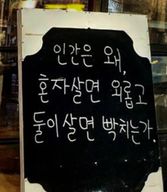 인간은 왜,
혼자살면 외롭고
둘이살면 빡치는가.